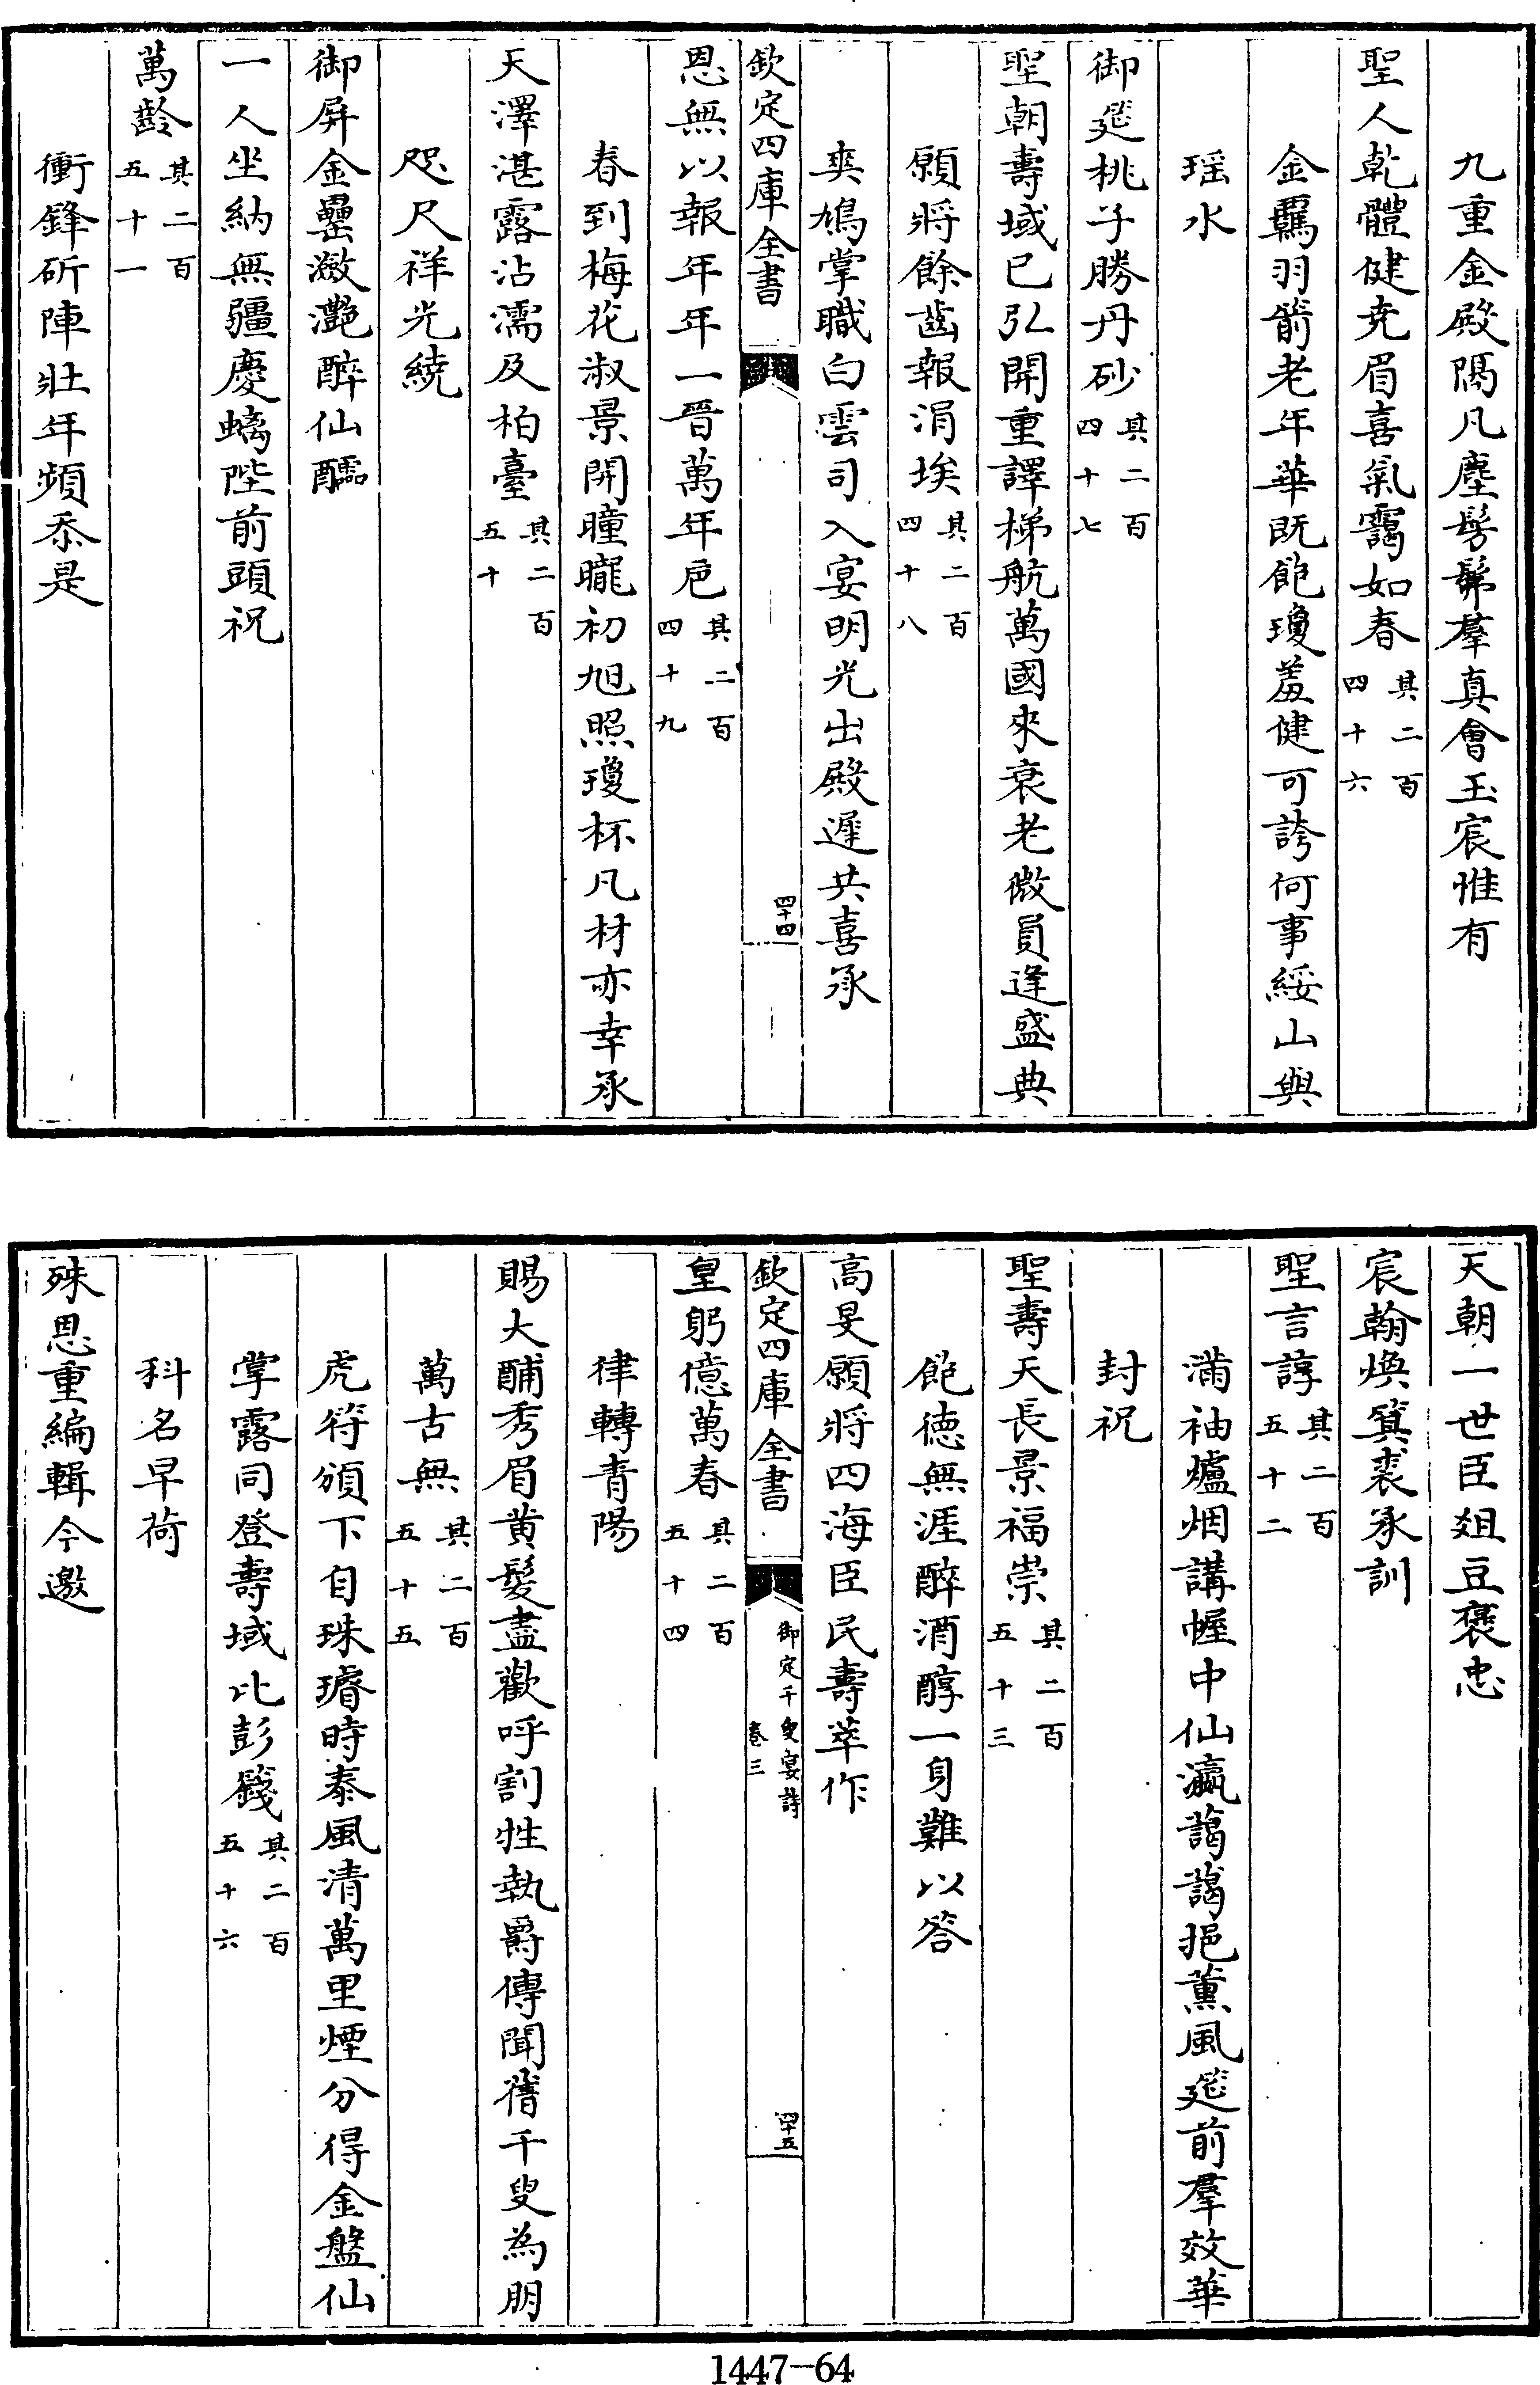 九重金殿隔凡塵髣髴羣真會玉宸惟有
聖人乾體健堯眉喜氣靄如春其二百四十六
金羈羽箭老年華既飽瓊羞健可誇何事綏山與
瑶水
御筵桃子勝丹砂其二百四十七
聖朝壽域已弘開重譯梯航萬國來衰老微員逢盛典
願將餘齒報涓埃其二百四十八
爽鳩掌職白雲司入宴明光出殿遲共喜承
欽定四庫全書
四十四
恩無以報年年一晉萬年巵其二百四十九
春到梅花淑景開曈曨初旭照瓊杯凡材亦幸承
天澤湛露沾濡及柏臺其二百五十
咫尺祥光繞
御屏金罍瀲灧醉仙醹
一人坐納無疆慶螭陛前頭祝
萬齡其二百五十一
衝鋒斫陣壯年頻忝是
天朝一世臣俎豆褒忠
宸翰煥箕裘承訓
聖言諄其二百五十二
滿袖爐烟講幄中仙瀛藹藹挹薰風筵前羣效華
封祝
聖壽天長景福崇其二百五十三
飽德無涯醉酒醇一身難以答
高旻願將四海臣民壽萃作
欽定四庫全書
御定千叟宴詩
卷三
四十五
皇躬億萬春其二百五十四
律轉青陽
賜大酺秀眉黄髮盡歡呼割牲執爵傳聞舊千叟為朋
萬古無其二百五十五
虎符頒下自珠璿時泰風清萬里煙分得金盤仙
掌露同登壽域比彭籛其二百五十六
科名早荷
殊恩重編輯今邀
1447-64